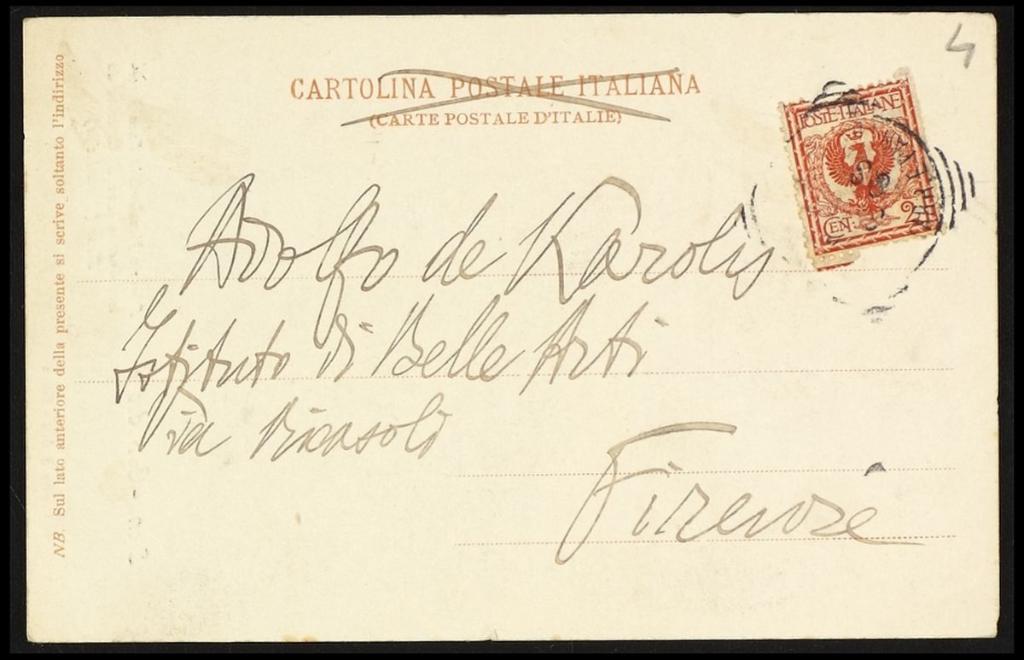 4
CARTOLINA POSTALE ITALIANA
(CARTE POSTALE D'ITALIE)
POSTE ITALIANE
CEN. 2
Adolfo de Karolis
Istituto di Belle Arti
Via Ricasoli
Firenze
NB. Sul lato anteriore della presente si scrive soltanto l'indirizzo